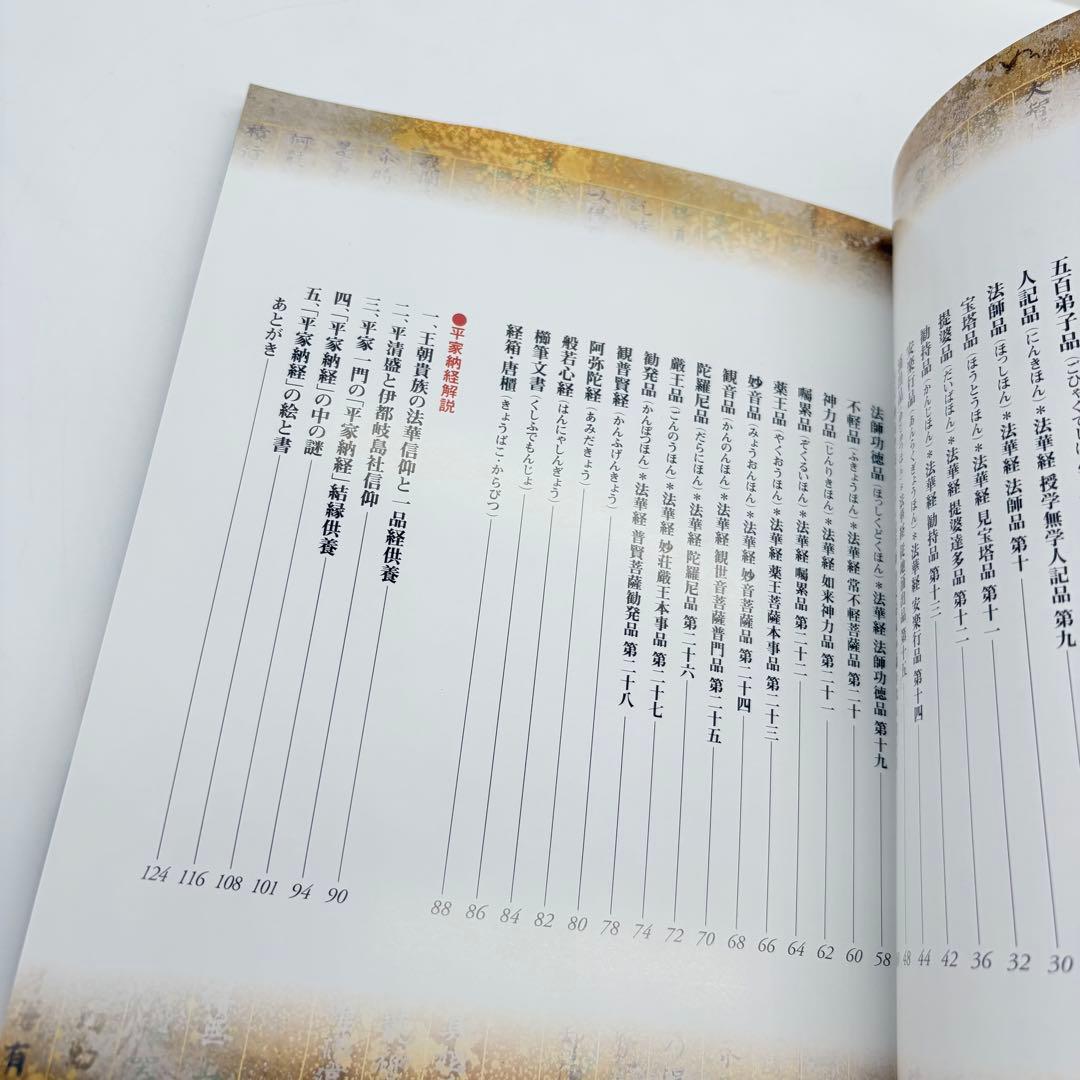 五百弟子品
人記品(にんきほん)*法華経 授学無学人記品 第九 30
法師品(ほっしほん)*法華経 法師品 第十 32
宝塔品(ほうとうほん)*法華経 見宝塔品 第十一 36
提婆品(だいばほん)*法華経 提婆達多品 第十二 42
勧持品(かんじほん)*法華経 勧持品 第十三 44
安楽行品(あんらくぎょうほん)*法華経 安楽行品 第十四 48
法師功徳品(ほっしくどくほん)*法華経 法師功徳品 第十九 58
不軽品(ふきょうほん)*法華経 常不軽菩薩品 第二十 60
神力品(じんりきほん)*法華経 如来神力品 第二十一 62
嘱累品(ぞくるいほん)*法華経 嘱累品 第二十二 64
薬王品(やくおうほん)*法華経 薬王菩薩本事品 第二十三 66
妙音品(みょうおんほん)*法華経 妙音菩薩品 第二十四 68
観音品(かんのんほん)*法華経 観世音菩薩普門品 第二十五 70
陀羅尼品(だらにほん)*法華経 陀羅尼品 第二十六 72
厳王品(ごんのうほん)*法華経 妙荘厳王本事品 第二十七 74
勧発品(かんぼつほん)*法華経 普賢菩薩勧発品 第二十八 78
観普賢経(かんふげんきょう) 80
阿弥陀経(あみだきょう) 82
般若心経(はんにゃしんぎょう) 84
櫛筆文書(くしふでもんじょ) 86
経箱・唐櫃(きょうばこ・からびつ) 88
●平家納経解説
一、王朝貴族の法華信仰と一品経供養 90
二、平清盛と伊都岐島社信仰 94
三、平家一門の「平家納経」結縁供養 101
四、「平家納経」の中の謎 108
五、「平家納経」の絵と書 116
あとがき 124